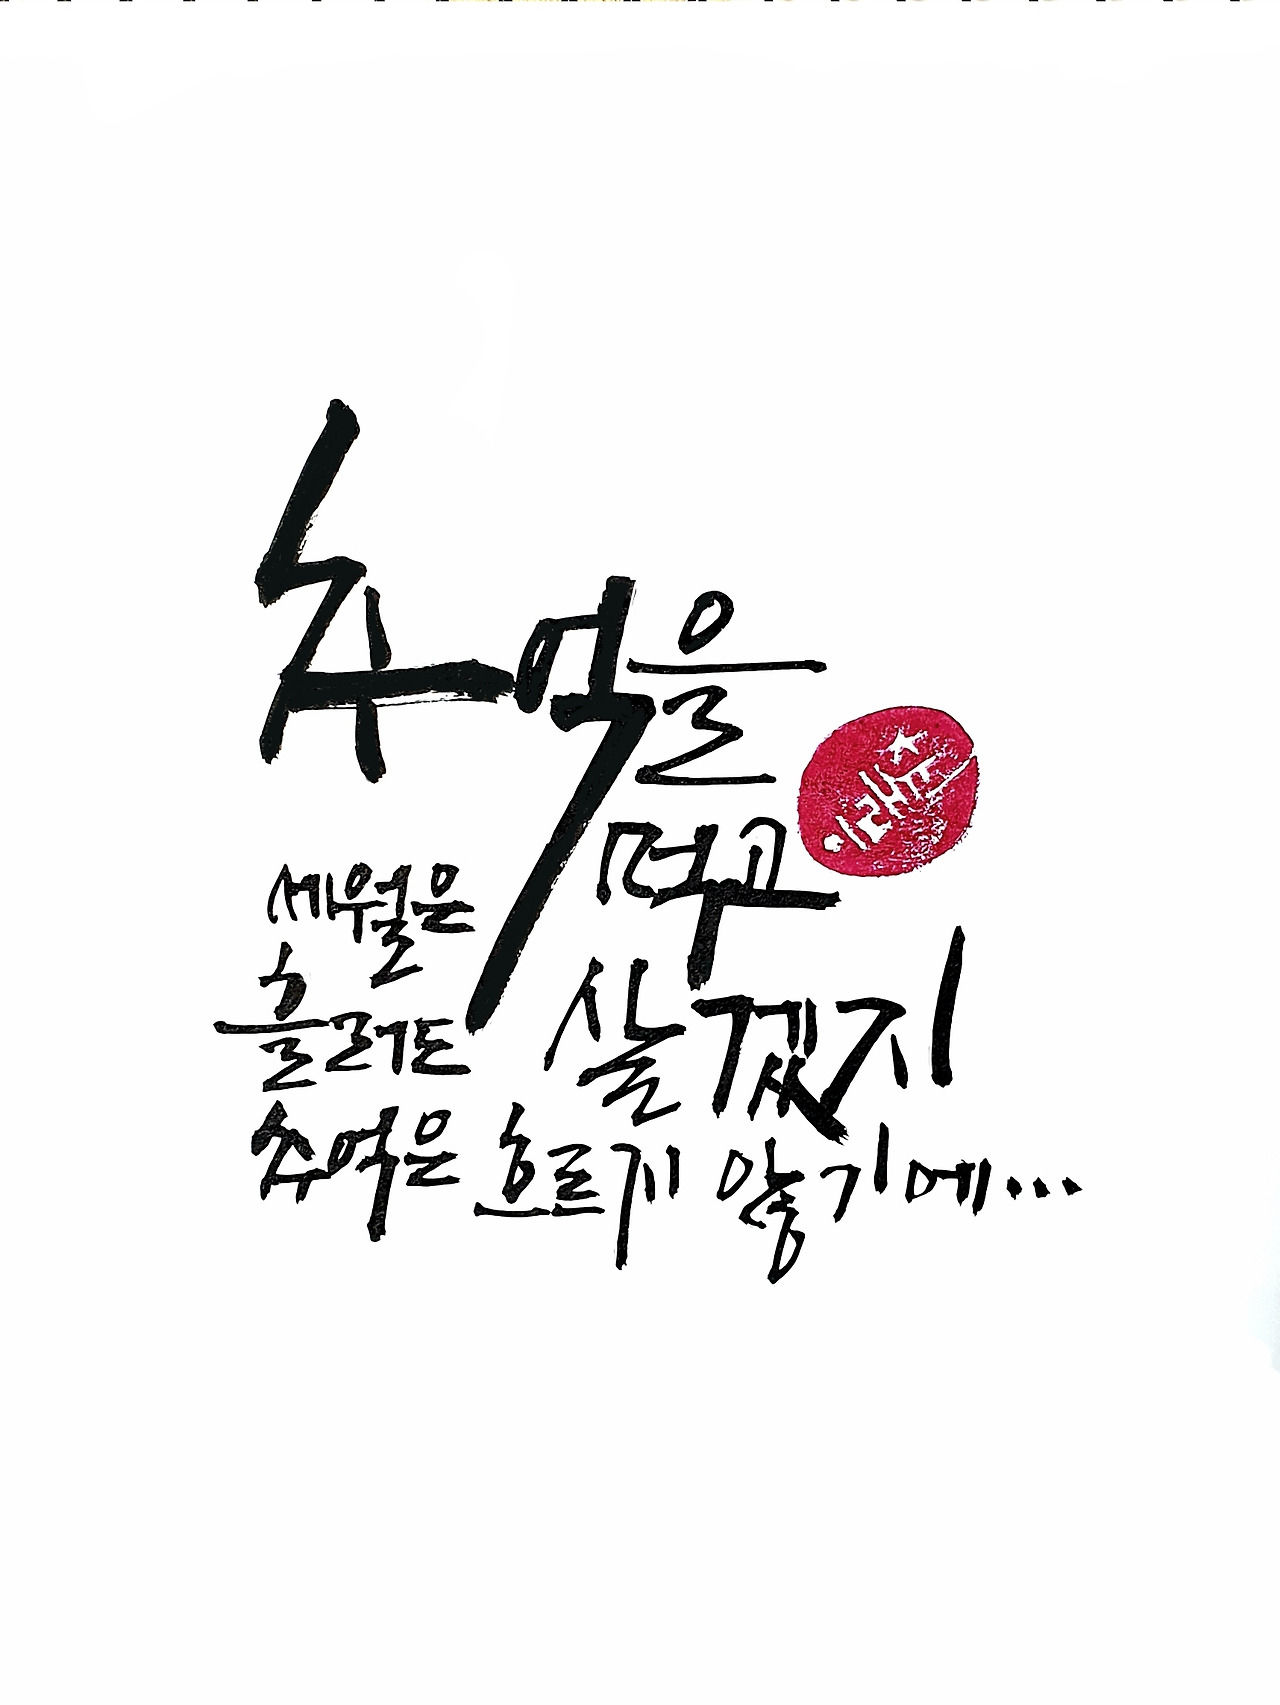 추억을
먹고
살겠지
세월은
흘러도
추억은 흐르지 않기에...